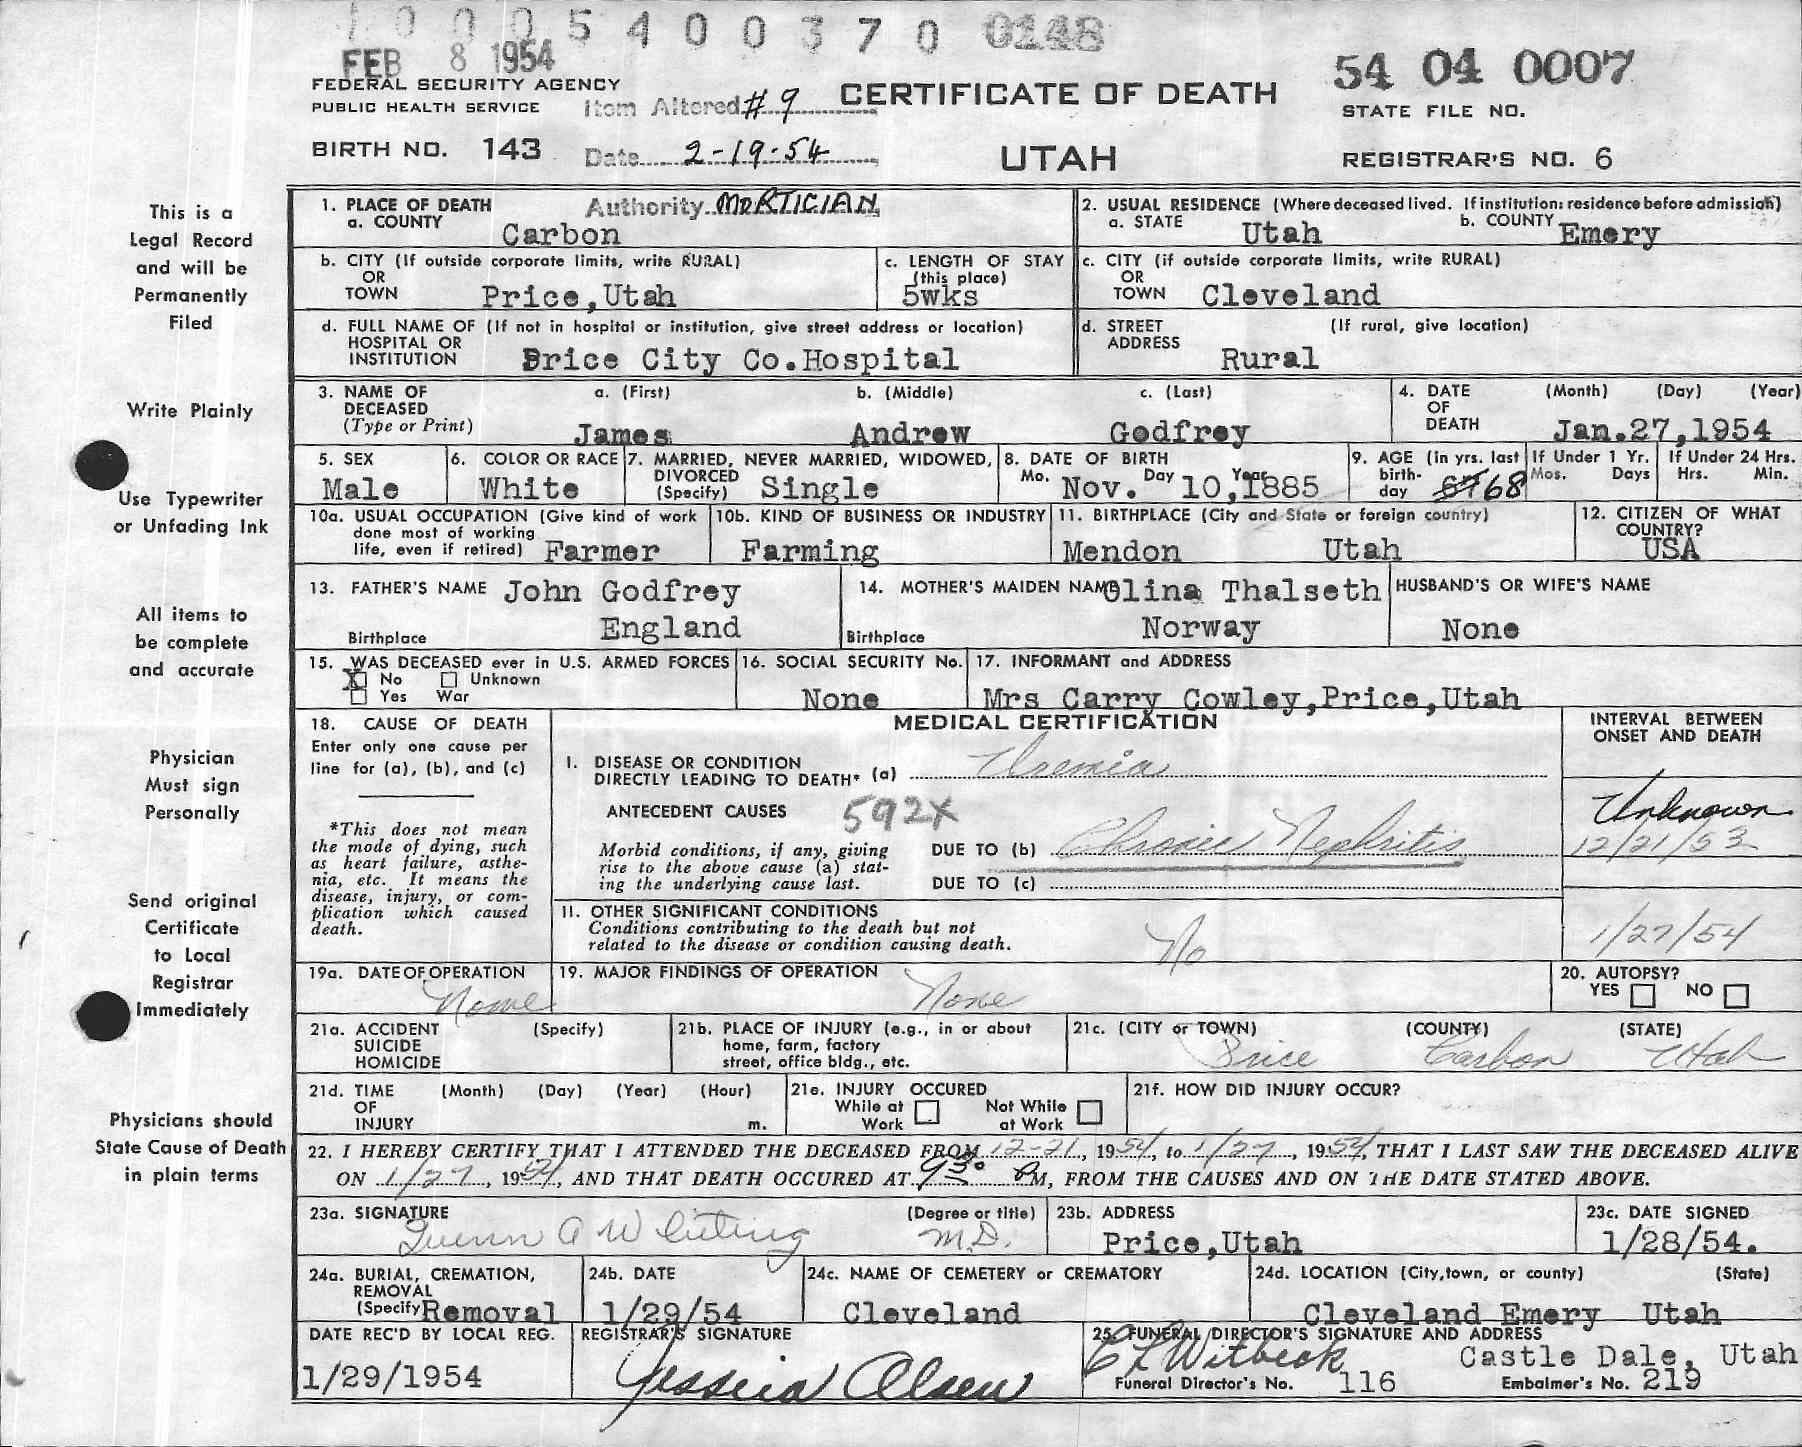 1 0 0 0 5 4 0 0 3 7 0 0148
FEB 8 1954
FEDERAL SECURITY AGENCY
PUBLIC HEALTH SERVICE
Item Altered #9
CERTIFICATE OF DEATH
54 04 0007
STATE FILE NO.
BIRTH NO. 143
Date 2-19-54
UTAH
REGISTRAR'S NO. 6
This is a
Legal Record
and will be
Permanently
Filed
Write Plainly
Use Typewriter
or Unfading Ink
All items to
be complete
and accurate
Physician
Must sign
Personally
Send original
Certificate
to Local
Registrar
Immediately
Physicians should
State Cause of Death
in plain terms
1. PLACE OF DEATH
a. COUNTY
Authority MORTICIAN
Carbon
2. USUAL RESIDENCE (Where deceased lived. If institution: residence before admission)
a. STATE Utah b. COUNTY Emery
b. CITY (If outside corporate limits, write RURAL)
OR
TOWN Price,Utah
c. LENGTH OF STAY
(this place)
5wks
c. CITY (if outside corporate limits, write RURAL)
OR
TOWN Cleveland
d. FULL NAME OF (If not in hospital or institution, give street address or location)
HOSPITAL OR
INSTITUTION Price City Co.Hospital
d. STREET (If rural, give location)
ADDRESS Rural
3. NAME OF a. (First) b. (Middle) c. (Last)
DECEASED
(Type or Print) James Andrew Godfrey
4. DATE (Month) (Day) (Year)
OF
DEATH Jan.27,1954
5. SEX
Male
6. COLOR OR RACE
White
7. MARRIED, NEVER MARRIED, WIDOWED,
DIVORCED
(Specify) Single
8. DATE OF BIRTH
Mo. Nov. Day 10, Year 1885
9. AGE (in yrs. last
birth-
day 67 68
If Under 1 Yr.
Mos. Days
If Under 24 Hrs.
Hrs. Min.
10a. USUAL OCCUPATION (Give kind of work
done most of working
life, even if retired) Farmer
10b. KIND OF BUSINESS OR INDUSTRY
Farming
11. BIRTHPLACE (City and State or foreign country)
Mendon Utah
12. CITIZEN OF WHAT
COUNTRY?
USA
13. FATHER'S NAME John Godfrey
Birthplace England
14. MOTHER'S MAIDEN NAME Olina Thalseth
Birthplace Norway
HUSBAND'S OR WIFE'S NAME
None
15. WAS DECEASED ever in U.S. ARMED FORCES
X No Unknown
Yes War
16. SOCIAL SECURITY No.
None
17. INFORMANT and ADDRESS
Mrs Carry Cowley,Price,Utah
18. CAUSE OF DEATH
Enter only one cause per
line for (a), (b), and (c)
*This does not mean
the mode of dying, such
as heart failure, asthe-
nia, etc. It means the
disease, injury, or com-
plication which caused
death.
MEDICAL CERTIFICATION
I. DISEASE OR CONDITION
DIRECTLY LEADING TO DEATH* (a) Uremia
ANTECEDENT CAUSES 592X
Morbid conditions, if any, giving
rise to the above cause (a) stat-
ing the underlying cause last.
DUE TO (b) Chronic Nephritis
DUE TO (c)
II. OTHER SIGNIFICANT CONDITIONS
Conditions contributing to the death but not
related to the disease or condition causing death.
No
INTERVAL BETWEEN
ONSET AND DEATH
Unknown
12/21/53
1/27/54
19a. DATE OF OPERATION
None
19. MAJOR FINDINGS OF OPERATION
None
20. AUTOPSY?
YES NO
21a. ACCIDENT (Specify)
SUICIDE
HOMICIDE
21b. PLACE OF INJURY (e.g., in or about
home, farm, factory
street, office bldg., etc.
21c. (CITY or TOWN) (COUNTY) (STATE)
Price Carbon Utah
21d. TIME (Month) (Day) (Year) (Hour)
OF
INJURY m.
21e. INJURY OCCURED
While at Not While
Work at Work
21f. HOW DID INJURY OCCUR?
22. I HEREBY CERTIFY THAT I ATTENDED THE DECEASED FROM 12-21, 1954, to 1/27, 1954, THAT I LAST SAW THE DECEASED ALIVE
ON 1/27, 1954, AND THAT DEATH OCCURED AT 930 PM, FROM THE CAUSES AND ON THE DATE STATED ABOVE.
23a. SIGNATURE (Degree or title)
Quinn A Whiting M.D.
23b. ADDRESS
Price,Utah
23c. DATE SIGNED
1/28/54.
24a. BURIAL, CREMATION,
REMOVAL
(Specify Removal
24b. DATE
1/29/54
24c. NAME OF CEMETERY or CREMATORY
Cleveland
24d. LOCATION (City,town, or county) (State)
Cleveland Emery Utah
DATE REC'D BY LOCAL REG.
1/29/1954
REGISTRAR'S SIGNATURE
Jesseia Olsen
25. FUNERAL DIRECTOR'S SIGNATURE AND ADDRESS
E L Witbeck Castle Dale, Utah
Funeral Director's No. 116 Embalmer's No. 219